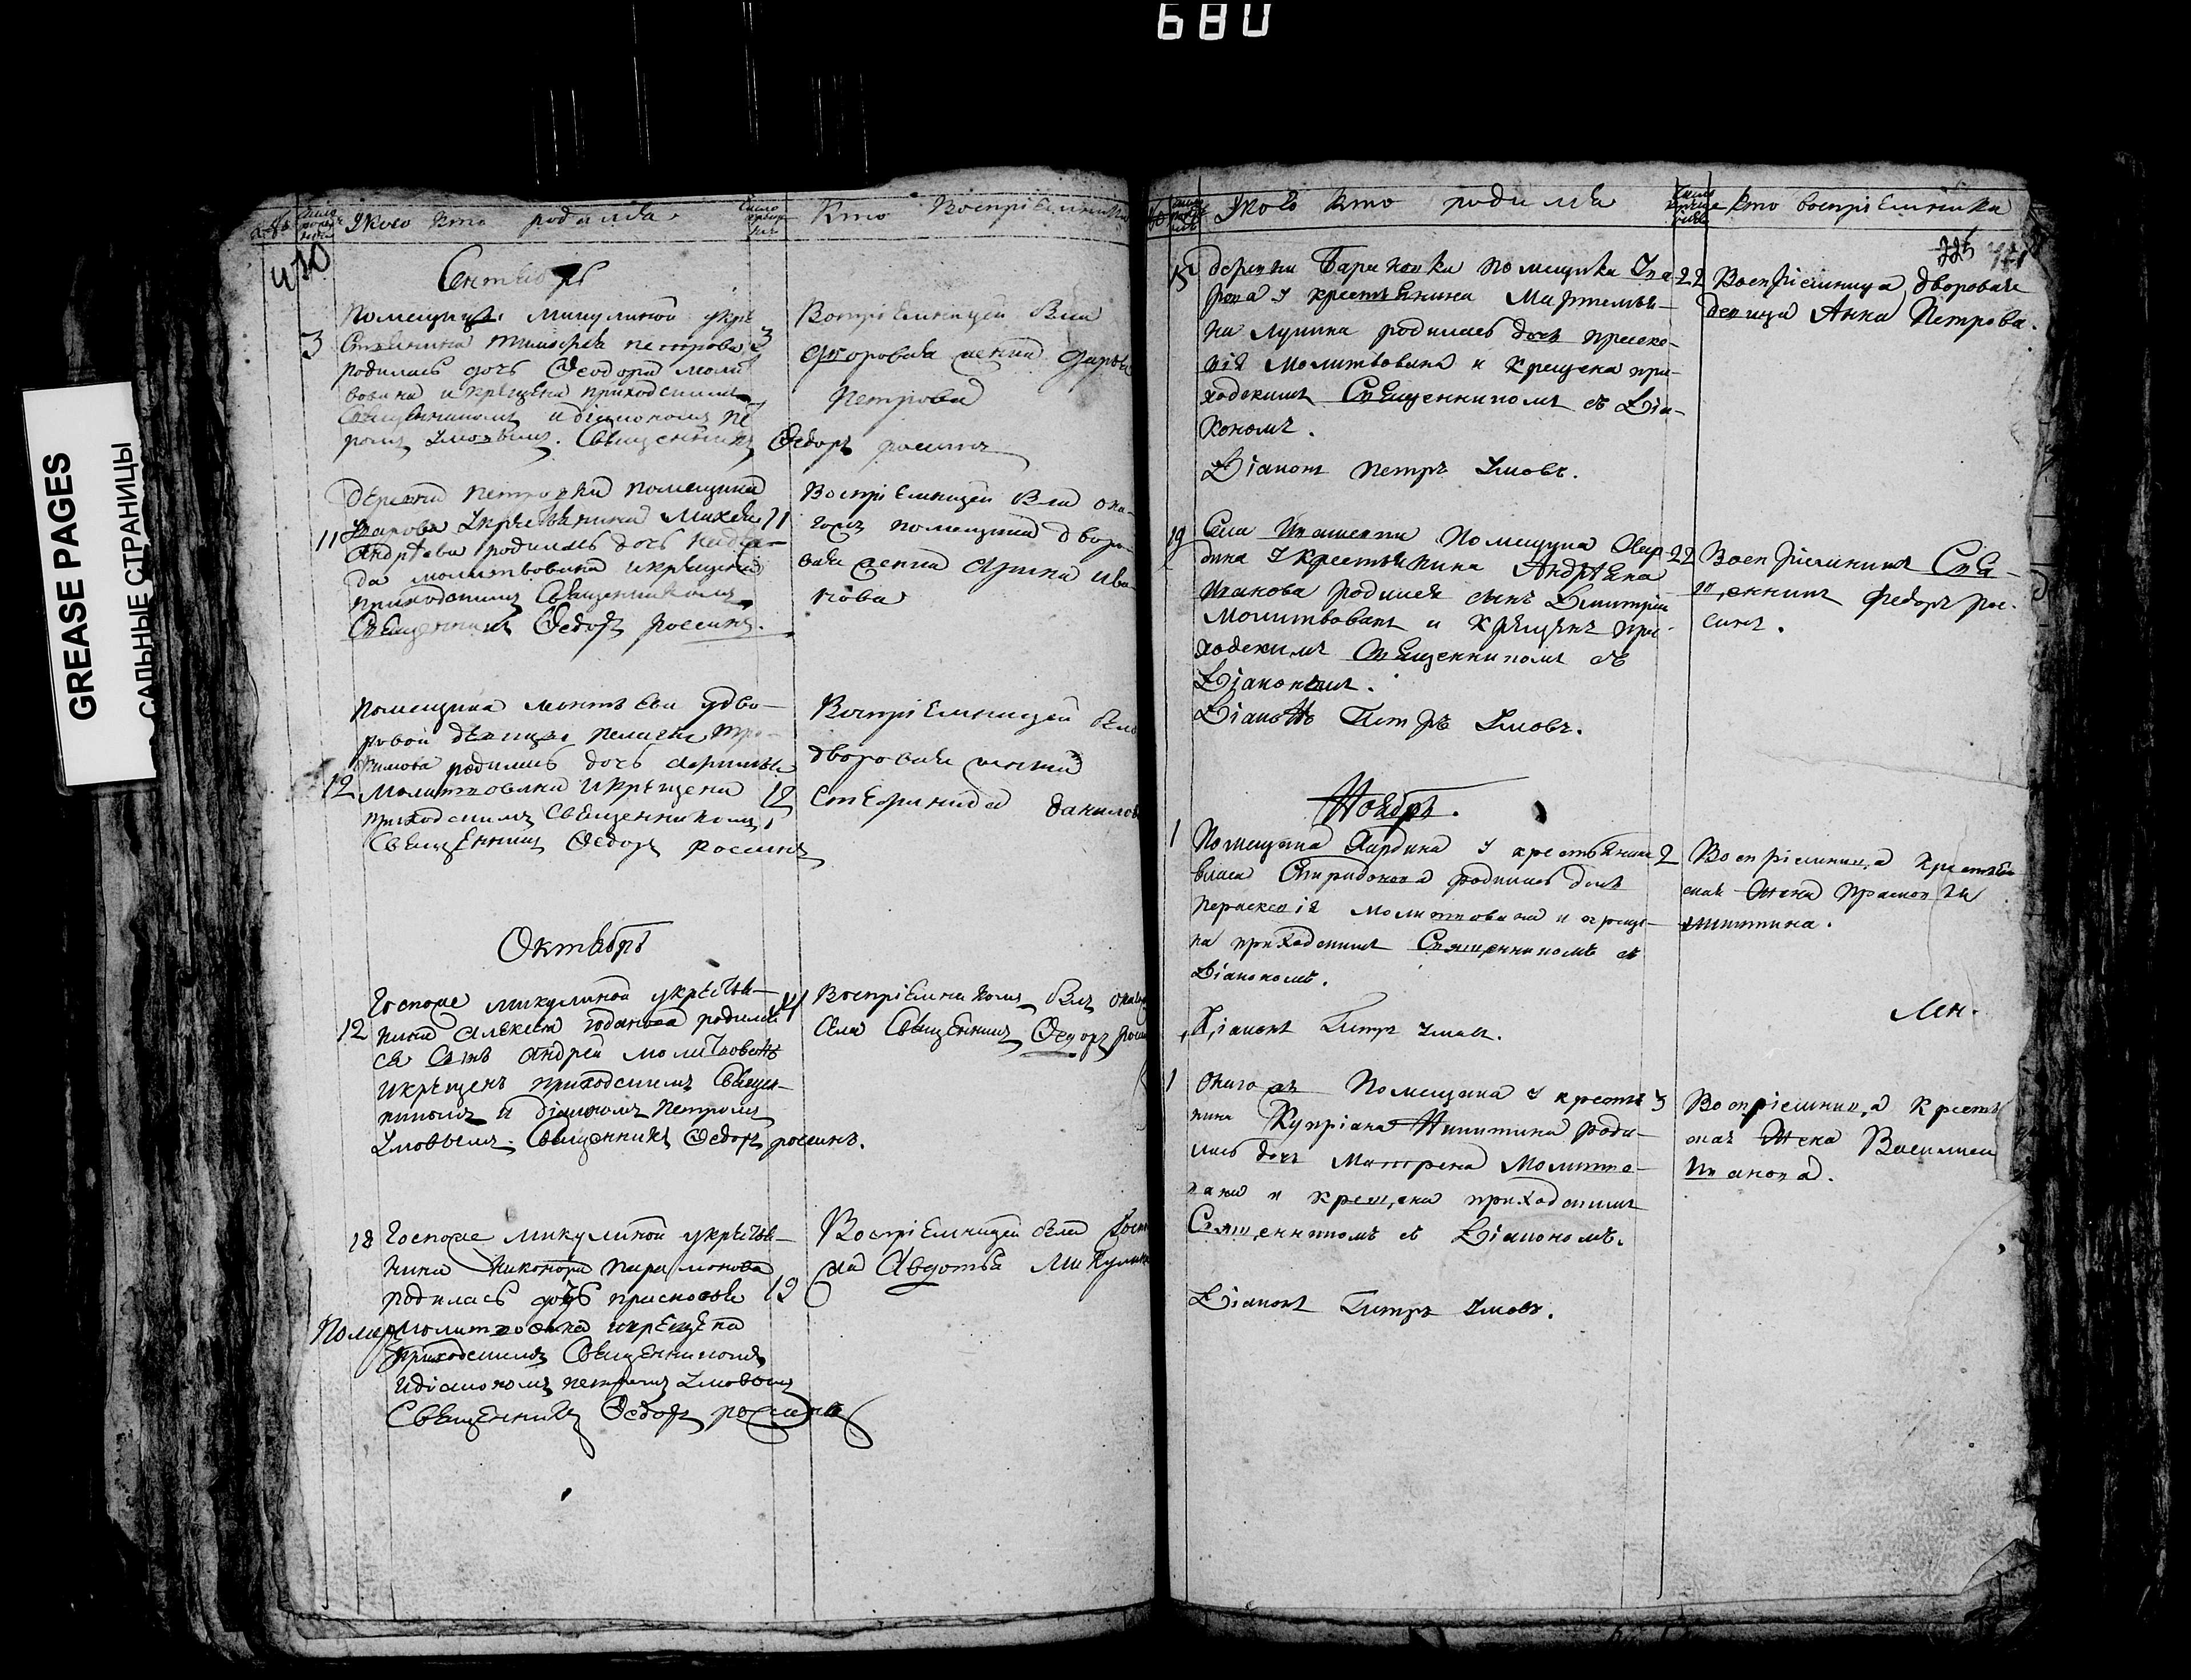 680
GREASE PAGES
САЛЬНЫЕ СТРАНИЦЫ
Укого кто родился
Кто восприемники
430
Сентябрь
помещицы микулиной укре
3 стьянина тимофея петрова 3
родилась дочь Феодора моли
вована и крещена приходским
священником и диаконом пе
тром Умовым. Священникъ Федоръ россинъ
Восприемницей была
дворовая женка дарья
Петрова
деревни петровки помещика
Уварова укрестьянина михея 11
11 Андреева родилась дочь
молитвована икрещена
приходским Священником
Священникъ Федоръ россинъ.
Восприемницей была она-
гожъ помещика дворо-
вая женка Арина ива
нова
помещика удво-
ровой девицы пелагеи тро-
фимова родилась дочь
12 Молитвована икрещена 12
приходскимъ Священникомъ
Священникъ Федоръ россинъ
Восприемницей была
дворовая женка
Стефанида данилов
Октябрь
Госпоже микулиной укрестья-
12 нина Алексея родил 14
ся Сынъ Андрей молитвованъ
икрещенъ приходскимъ Священ-
никомъ и диакономъ петромъ
Умовымъ. Священникъ Федоръ россинъ.
Восприемникомъ былъ онаго
села Священникъ Федоръ росси
18 Госпоже микулиной укрестья-
нина Никонора парамонова
родилась дочь прасковья 19
Помер молитвована икрещена
приходскимъ Священникомъ
идиакономъ петромъ Умовымъ
Священникъ Федоръ россинъ
Восприемницей была Госпо
жа Авдотья Микулина
Укого кто родился
кто восприемники
225
15 деревни помещика Ува- 22
рова у крестьянина Мартемья-
на Лупина родилась дочь праско-
вiя молитвована и крещена при-
ходскимъ Священникомъ съ Дiа-
кономъ.
Дiаконъ петръ Умовъ.
Воспрiемница дворовая
девица Анна Петрова.
19 Села Помещика Хар- 22
дина у крестьянина Андреяна
Иванова родился сынъ Димитрiй
Молитвованъ и крещенъ при-
ходскимъ Священникомъ съ
Дiакономъ.
Дiаконъ Петръ Умовъ.
Воспрiемникъ Свя-
щенникъ Федоръ рос-
синъ.
Ноябрь.
1 Помещика Хардина у крестьянина 2
власа Спиридонова родилась дочь
параскевiя молитвована и креще-
на приходскимъ Священникомъ съ
Дiакономъ.
Дiаконъ Петръ Умовъ.
Воспрiемница крестьян
ская Жена
Никитина.
1 Онаго жъ Помещика у крестья 3
нина Купрiана Никитина роди-
лась дочь Матрена Молитво-
вана и крещена приходскимъ
Священникомъ съ Дiакономъ.
Дiаконъ Петръ Умовъ.
Воспрiемница Крестьян
ская Жена Василиса
Иванова.